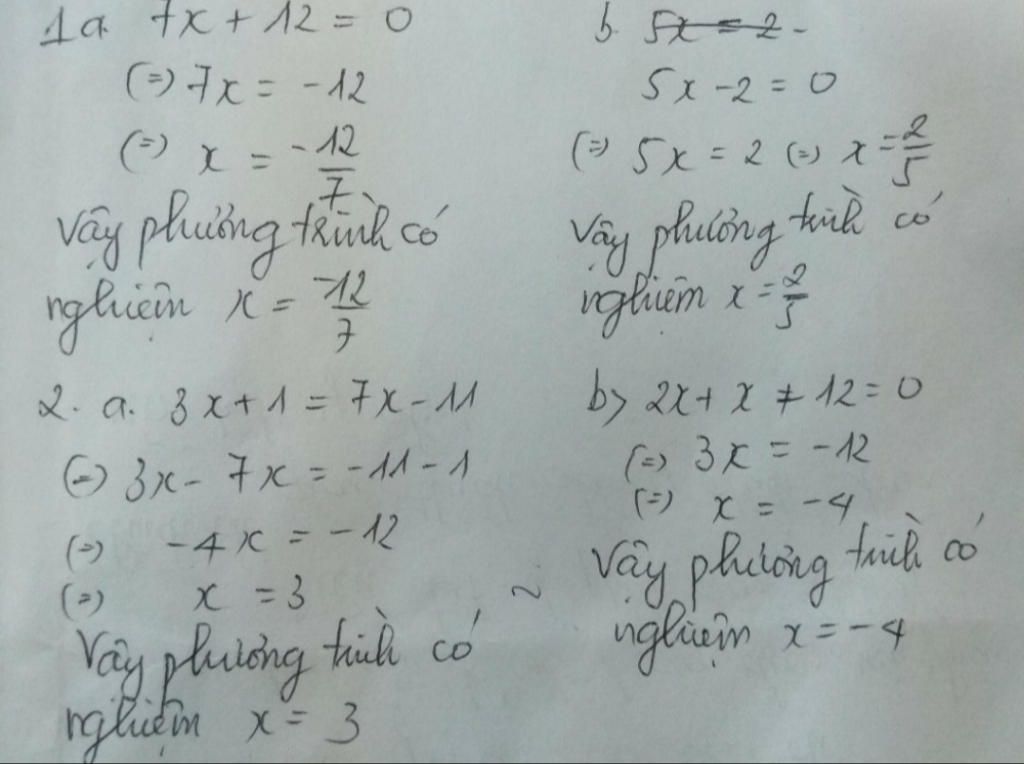 1a. 7x + 12 = 0
(=) 7x = -12
(=) x = -12/7
Vậy phương trình có
nghiệm x = -12/7
b. 5x = 2 -
5x - 2 = 0
(=) 5x = 2 (=) x = 2/5
Vậy phương trình có
nghiệm x = 2/5
2. a. 3x + 1 = 7x - 11
(=) 3x - 7x = -11 - 1
(=) -4x = -12
(=) x = 3
Vậy phương trình có
nghiệm x = 3
~
b) 2x + x + 12 = 0
(=) 3x = -12
(=) x = -4
Vậy phương trình có
nghiệm x = -4